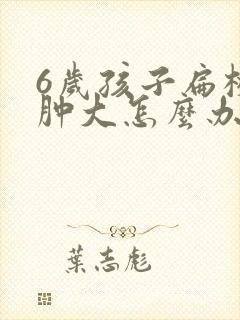 6歲孩子扁桃
肿大怎麼办
葉志彪